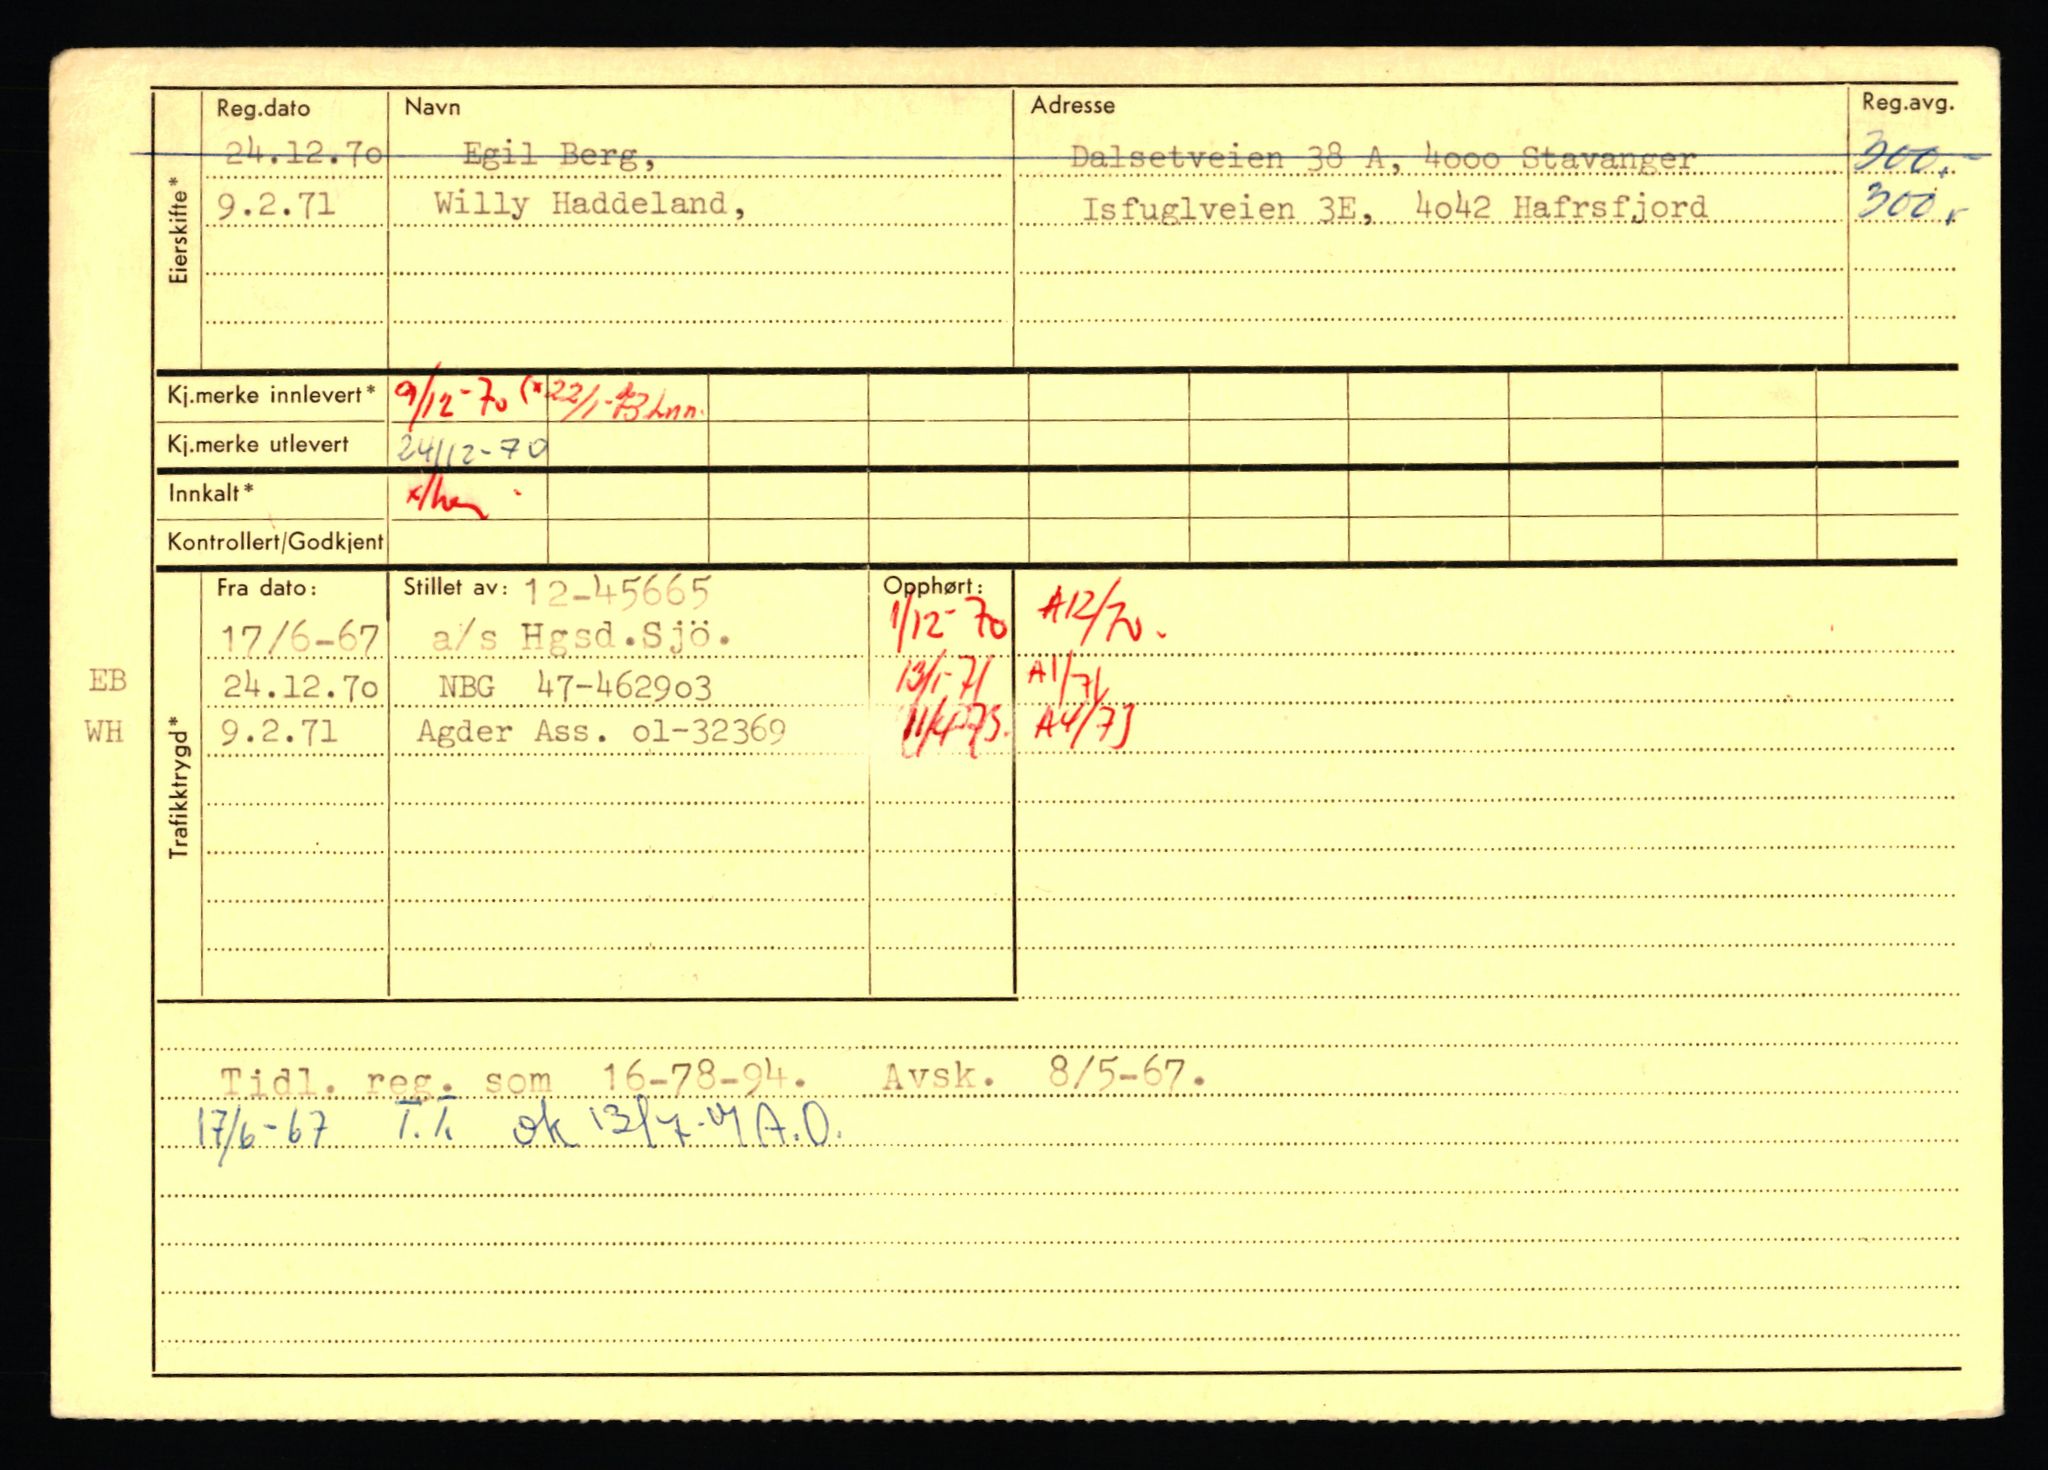 Reg.dato Navn Adresse Reg.avg.
24.12.7o Egil Berg, Dalsetveien 38 A, 4ooo Stavanger 300,-
9.2.71 Willy Haddeland, Isfuglveien 3E, 4o42 Hafrsfjord 300,-
Eierskifte*
Kj.merke innlevert* 9/12-70 (* 22/1-73
Kj.merke utlevert 24/12-70
Innkalt*
Kontrollert/Godkjent
Fra dato: Stillet av: 12-45665 Opphørt:
17/6-67 a/s Hgsd.Sjö. 1/12-70 A12/70.
EB 24.12.7o NBG 47-4629o3 13/1-71 A1/71
WH 9.2.71 Agder Ass. o1-32369 11/4-73. A4/73
Trafikktrygd*
Tidl. reg. som 16-78-94. Avsk. 8/5-67.
17/6-67 T.T. ok 13/7- A.O.